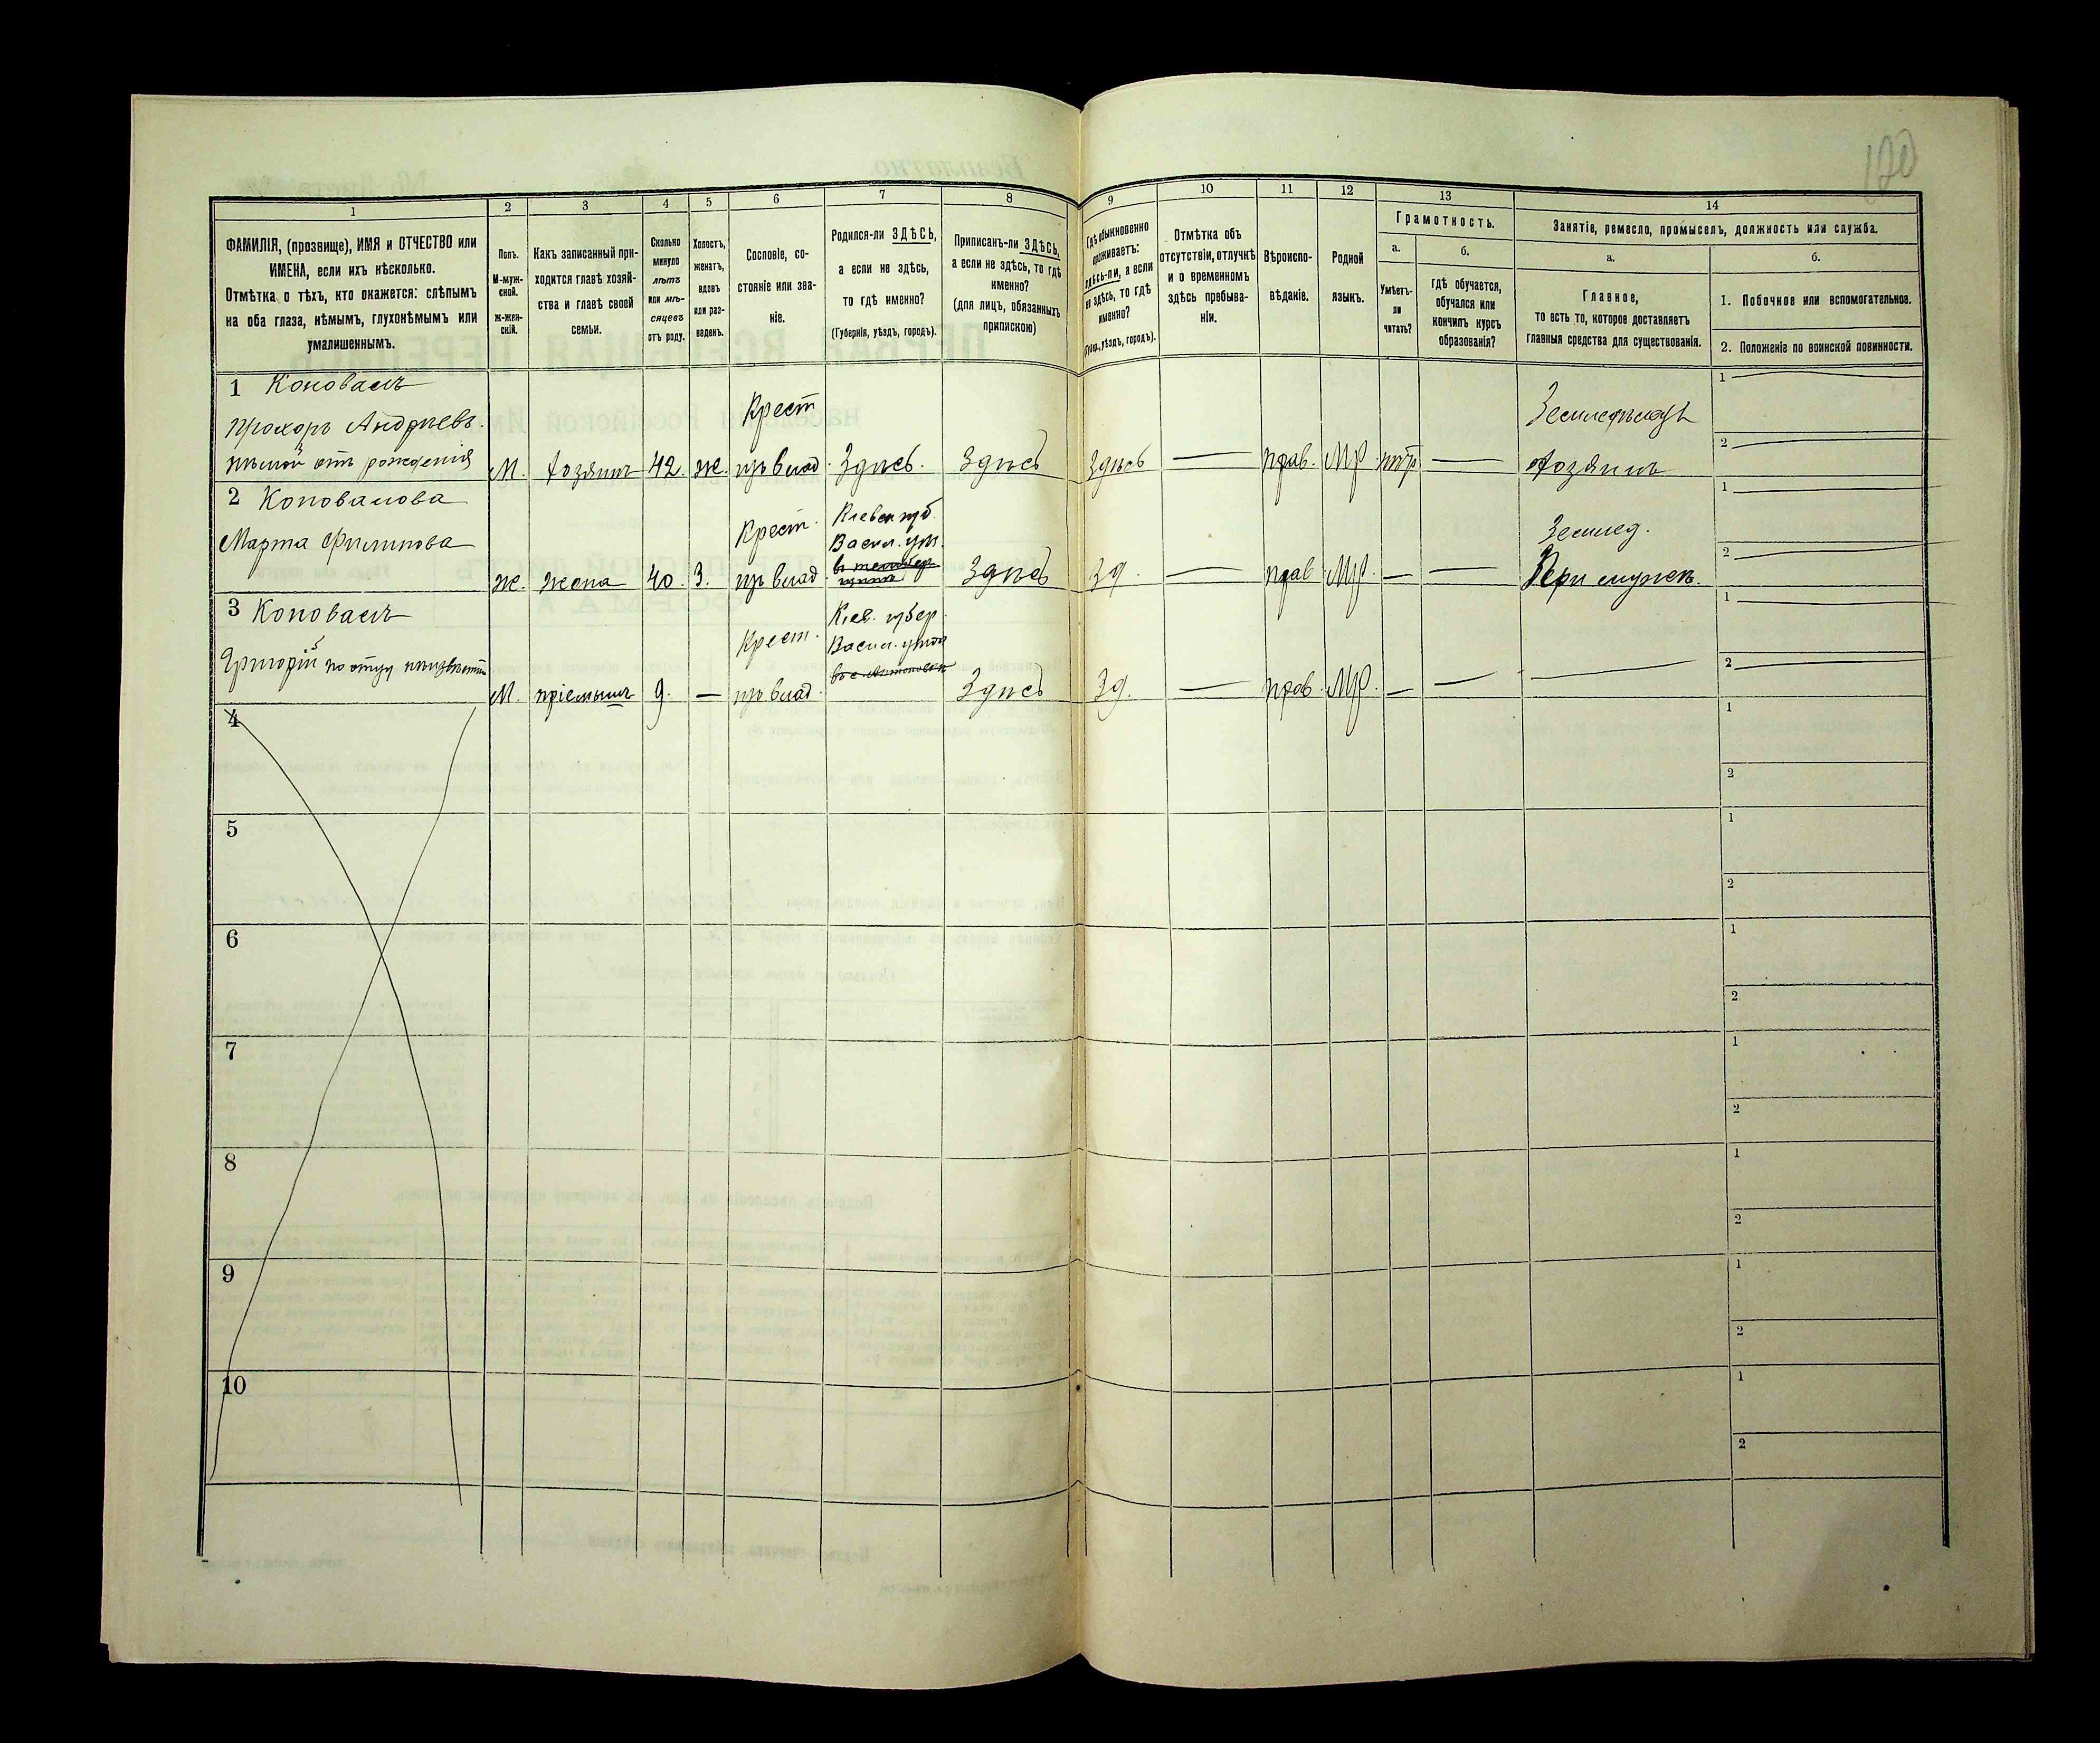 100
1
2
3
4
5
6
7
8
9
10
11
12
13
14
ФАМИЛІЯ, (прозвище), ИМЯ и ОТЧЕСТВО или
ИМЕНА, если ихъ нѣсколько.
Отмѣтка о тѣхъ, кто окажется: слѣпымъ
на оба глаза, нѣмымъ, глухонѣмымъ или
умалишеннымъ.
Полъ.
М-муж-
ской.
ж-жен-
скій.
Какъ записанный при-
ходится главѣ хозяй-
ства и главѣ своей
семьи.
Сколько
минуло
лѣтъ
или мѣ-
сяцевъ
отъ роду.
Холостъ,
женатъ,
вдовъ
или раз-
веденъ.
Сословіе, со-
стояніе или зва-
ніе.
Родился-ли ЗДѢСЬ,
а если не здѣсь,
то гдѣ именно?
(Губернія, уѣздъ, городъ).
Приписанъ-ли ЗДѢСЬ,
а если не здѣсь, то гдѣ
именно?
(для лицъ, обязанныхъ
припискою)
Гдѣ обыкновенно
проживаетъ:
здѣсь-ли, а если
не здѣсь, то гдѣ
именно?
(Губер., уѣздъ, городъ).
Отмѣтка объ
отсутствіи, отлучкѣ
и о временномъ
здѣсь пребыва-
ніи.
Вѣроиспо-
вѣданіе.
Родной
языкъ.
Грамотность.
а.
Умѣетъ-
ли
читать?
б.
гдѣ обучается,
обучался или
кончилъ курсъ
образованія?
Занятіе, ремесло, промыселъ, должность или служба.
а.
Главное,
то есть то, которое доставляетъ
главныя средства для существованія.
б.
1. Побочное или вспомогательное.
2. Положеніе по воинской повинности.
1 Коновалъ
Прохоръ Андреевъ
нѣмой отъ рожденія
М.
Хозяинъ
42.
Ж.
Крест
изъ влад.
Здѣсь.
Здѣсь
Здѣсь
прав.
МР.
Земледѣлецъ
Хозяинъ
1
2
2 Коновалова
Марта Филипова
Ж.
Жена
40.
З.
Крест.
изъ влад.
Кіевск губ.
Васил. ум.
Здѣсь
Зд.
прав
МР.
Землед.
При мужѣ.
1
2
3 Коновалъ
Григорій по отцу неизвѣстн
М.
пріемышъ
9.
Крест.
изъ влад.
Кіев. губер.
Васил. уѣзда
Здѣсь
Зд.
прав.
МР.
1
2
4
1
2
5
1
2
6
1
2
7
1
2
8
1
2
9
1
2
10
1
2